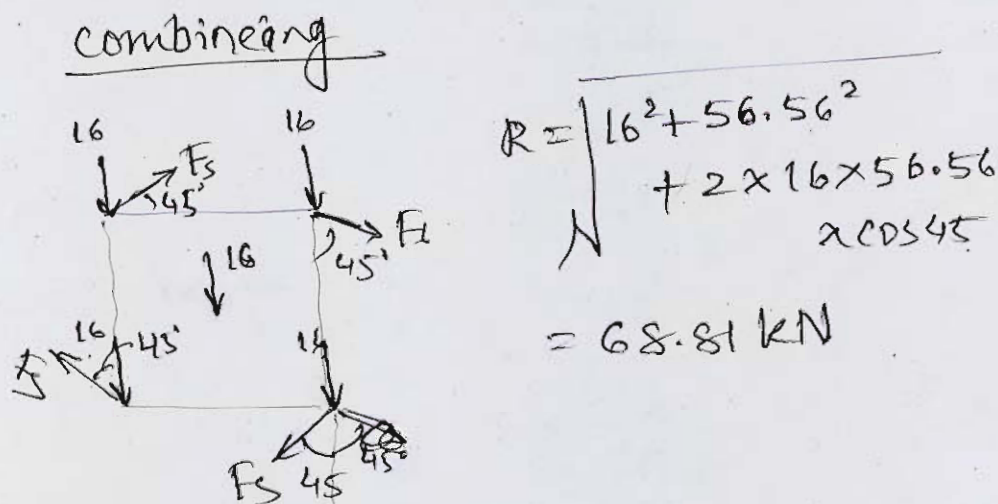 combineing
16 16
Fs
45°
F1
45°
16
16 45°
Fs
16
45°
Fs 45
R = √16² + 56.56²
+ 2 × 16 × 56.56
× cos 45
= 68.81 kN